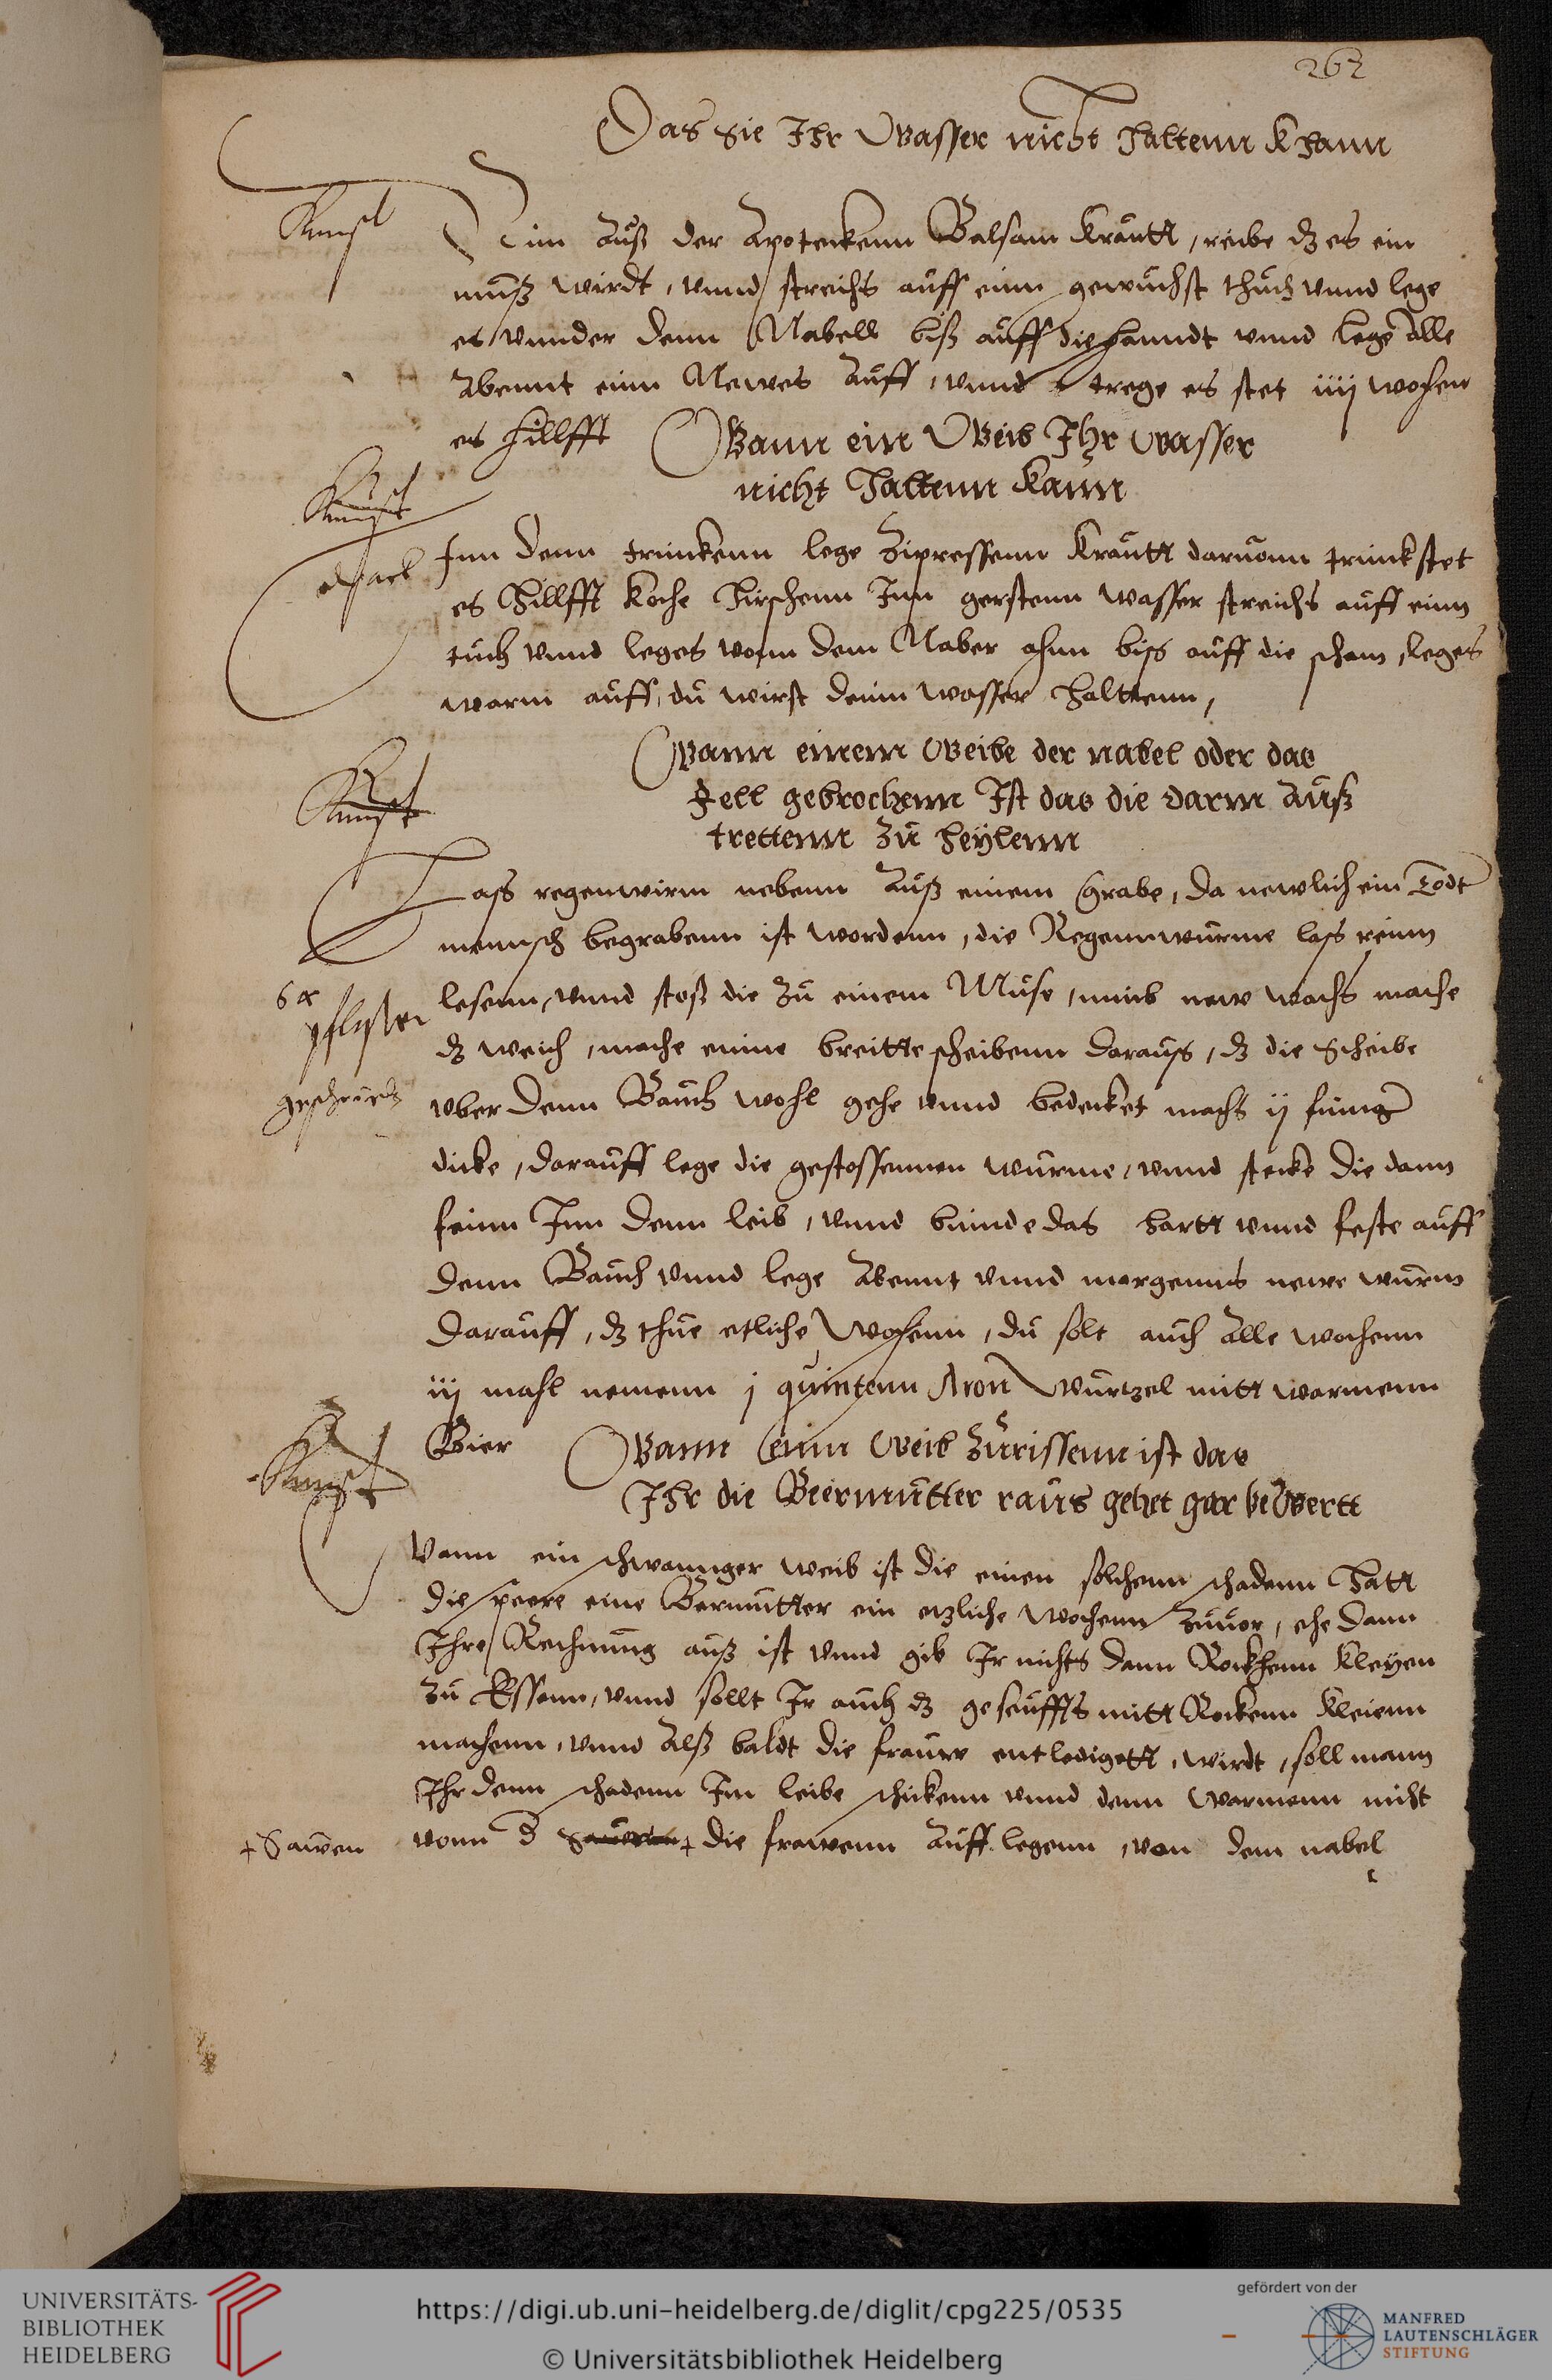 262
Das Sie Ihr Wasser nicht haltenn Khann
Kunst
Nim Auß der Apoteckenn Balsam Krautt, reibe dz es ein
muß wirdt, vnnd streichs auff einn gewuchst thuch vnnd lege
es vnnder denn Nabell biß auff die hanndt vnnd lege alle
Abennt einn Newes Auff, vnnd trege es stet iiij wochen
es hillfft
Wann ein Weib Ihr wasser
nicht haltenn kann
Kunst
Inn denn trinckenn lege Zipressenn Krautt daruonn trinck stet
es hillfft koche hirschenn Inn gerstenn wasser streichs auff einn
tuch vnnd leges vonn dem Naber ahnn biss auff die scham, leges
warm auff, du wirst deinn wasser halttenn,
Wann einem Weibe der nabel oder das
Fell gebrochenn Ist das die darm Auß
trettenn Zu heylenn
Kunst
Lass regenwirm nebenn Auß einem Grabe, da newlich ein Todt
mennsch begrabenn ist wordenn, die Regennwurme lass reinn
lesenn, vnnd stoß die Zu einem Muse, nimb new wachs mache
dz weich, mache einne breitte scheibenn darauss, dz die Scheibe
vber denn Bauch wohl gehe vnnd bedecket machs ij finger
dicke, darauff lege die gestossennen wurme, vnnd stecke die dann
feinn Inn denn leib, vnnd binde das hartt vnnd feste auff
denn Bauch vnnd lege Abennt vnnd morgenns newe wurm
darauff, dz thue etliche Wochenn, du solt auch Alle wochenn
iij mahl nemenn j quintenn Aron Wurtzel mitt warmenn
Bier
Wann einn Weib Zurissenn ist das
Ihr die Beermutter raus gehet gar bewertt
Kunst
Wann ein schwannger weib ist die einen solchenn schadenn hatt
die speere eine Bermutter ein etzliche wochenn Zuuor, ehe dann
Ihre Rechnung auß ist vnnd gib Ir nichts dann Rockhenn Kleyen
Zu Essenn, vnnd sollt Ir auch dz geseuffts mitt Rockenn Kleienn
machenn, vnnd Alß baldt die frauw entledigett, wirdt, soll mann
Ihr denn schadenn Im leibe schickenn vnnd denn warmenn mist
vonn d + die frawenn Auff legenn, von dem nabel
+ Sawen
UNIVERSITÄTS-
BIBLIOTHEK
HEIDELBERG
https://digi.ub.uni-heidelberg.de/diglit/cpg225/0535
© Universitätsbibliothek Heidelberg
gefördert von der
MANFRED
LAUTENSCHLÄGER
STIFTUNG